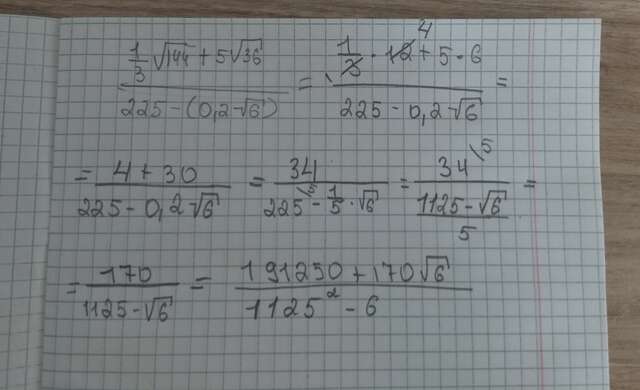 (1/3 √144 + 5√36) / (225 - (0,2√6)) = (1/3 · 12 4 + 5 · 6) / (225 - 0,2√6) =
= (4 + 30) / (225 - 0,2√6) = 34 / (225 \5 - 1/5 · √6) = 34 \5 / ((1125 - √6) / 5) =
= 170 / (1125 - √6) = (191250 + 170√6) / (1125² - 6)